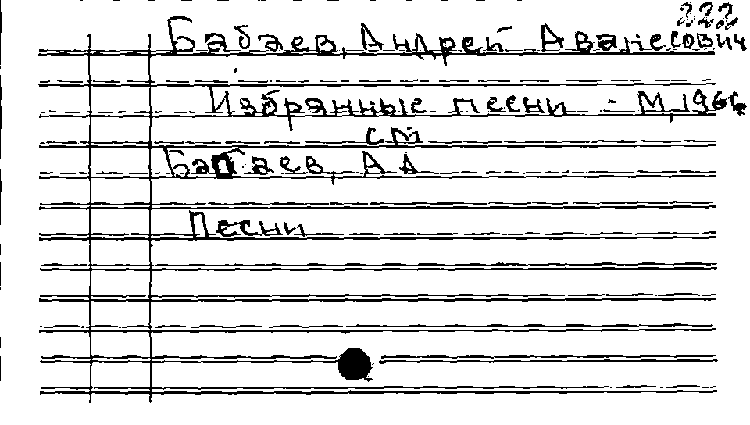 222
Бабаев, Андрей Аванесович
Избранные песни - М, 196
см
Бабаев, А А
Песни